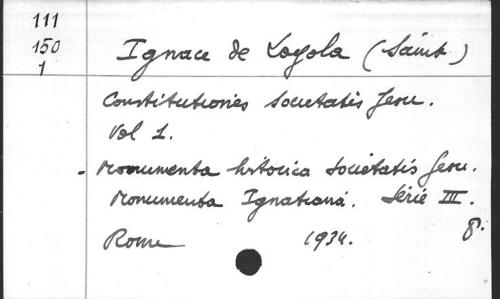 111
150
1
Ignace de Loyola (Saint)
Constitutiones Societatis Jesu.
Vol 1.
- Monumenta historica Societatis Jesu.
Monumenta Ignatiana. Série III.
Rome 1934. 8.